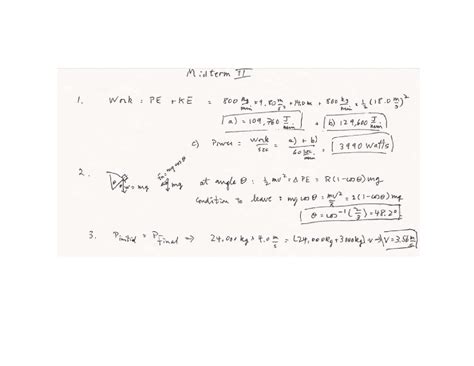 Midterm II
1. Work = PE + KE = 800 kg/min × 9.80 m/s² × 14.0m + 800 kg/min × ½ (18.0 m/s)²
a) = 109,760 J/min + b) 129,600 J/min
c) Power = work/sec = a) + b) / 60 sec/min = 3990 Watts
2. θ W = mg Fn = mg cos θ mg at angle θ : ½ mv² = ΔPE = R(1-cos θ) mg
Condition to leave : mg cos θ = mv²/R = 2(1-cos θ) mg
θ = cos⁻¹(2/3) = 48.2°
3. Pinitial = Pfinal ⇒ 24,000 kg × 4.0 m/s = (24,000 kg + 3000 kg) v ⇒ V = 3.56 m/s